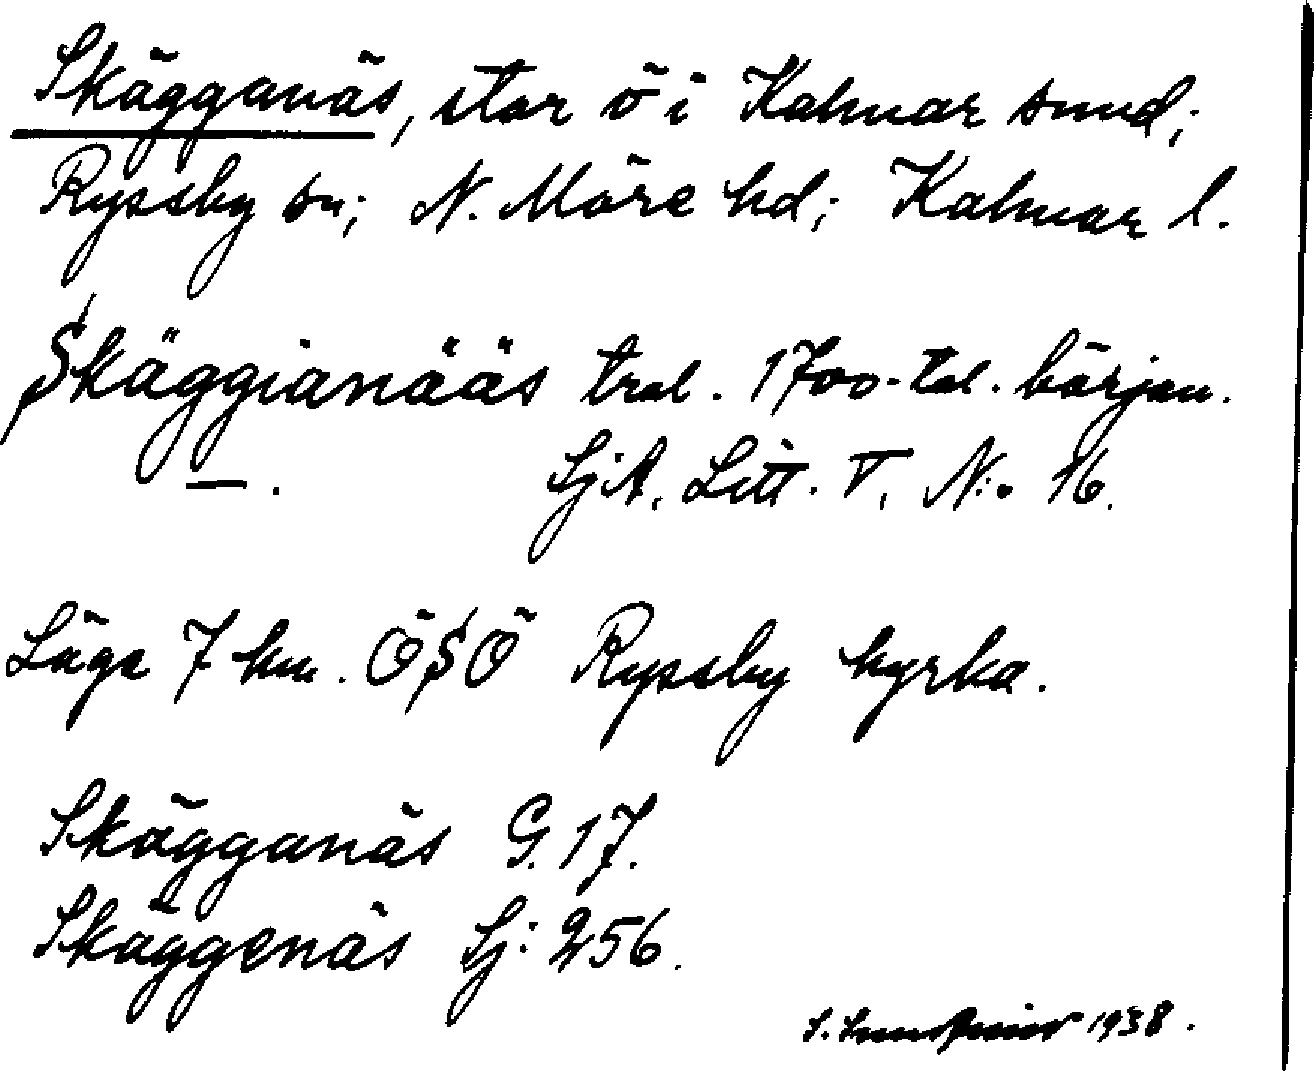 Skägganäs, stor ö i Kalmar sund;
Ryssby sn; N. Möre hd; Kalmar l.
Skäggianääs trol. 1700-tal. början.
SjA. Litt. V, N:o 16.
Läge 7 km. ÖSÖ Ryssby kyrka.
Skägganäs G. 17.
Skäggenäs Sj: 256.
S. 1938.